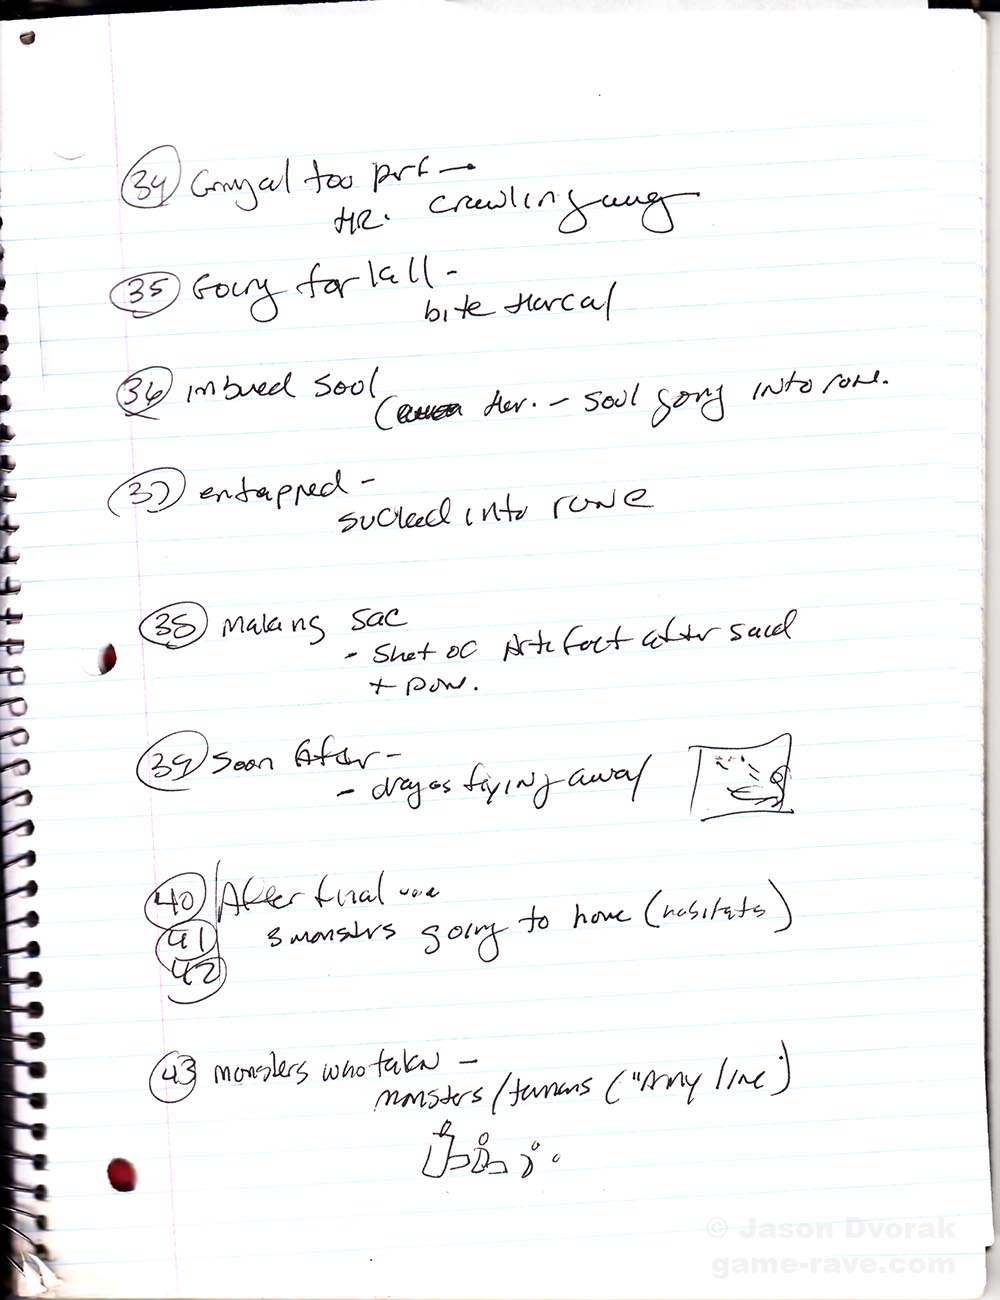 34 too
HR. crawling away
35 Going for kill -
bite Harcal
36 imbued Soul
( Her. - soul going into rune.
37 entrapped -
sucked into rune
38 making sac
- Shot of Artifact after sacd
+ pow.
39 Soon After -
- dragos flying away
40 After final
41 3 monstrs going to home (habitats)
42
43 monsters who taken -
monsters / (" Army line")
© Jason Dvorak
game-rave.com